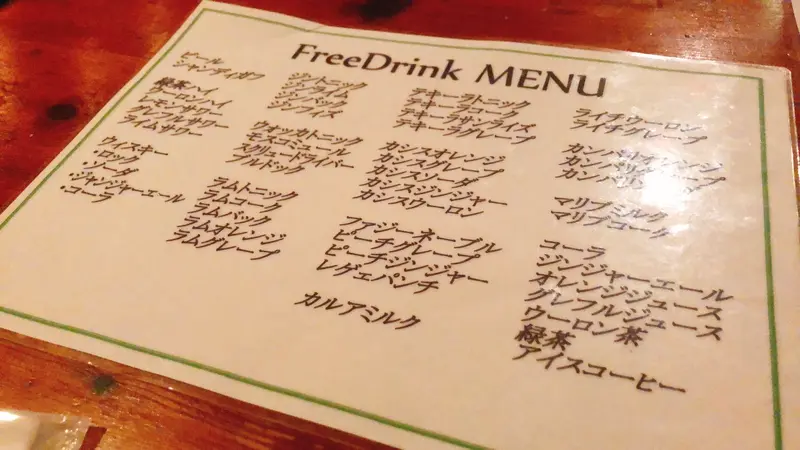 FreeDrink MENU
ビール
シャンディガフ
緑茶ハイ
ウーロンハイ
レモンサワー
グレフルサワー
ライムサワー
ウィスキー
・ロック
・ソーダ
・ジャンジャーエール
・コーラ
ジントニック
ジンライム
ジンバック
ジンフィズ
ウオッカトニック
モスコミュール
スクリュードライバー
ブルドック
ラムトニック
ラムコーク
ラムバック
ラムオレンジ
ラムグレープ
テキーラトニック
テキーラコーク
テキーラサンライズ
テキーラグレープ
カシスオレンジ
カシスグレープ
カシスソーダ
カシスジンジャー
カシスウーロン
ファジーネーブル
ピーチグレープ
ピーチジンジャー
レゲエパンチ
カルアミルク
ライチウーロン
ライチグレープ
カンパリオレンジ
マリブミルク
マリブコーク
コーラ
ジンジャーエール
オレンジジュース
グレフルジュース
ウーロン茶
緑茶
アイスコーヒー